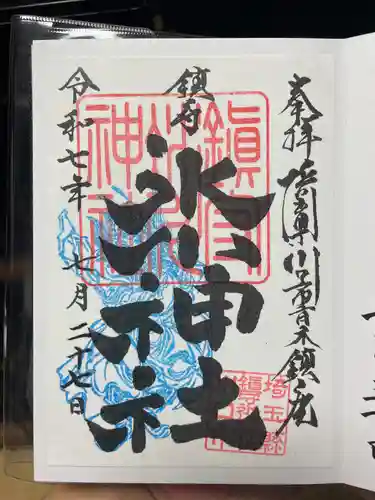 奉拝
埼玉県川口市青木鎮座
鎮守
氷川神社
令和七年 七月二十七日
鎮守氷川神社